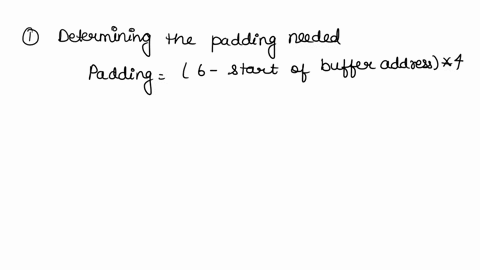 ① Determining the padding needed
Padding = ( 6 - start of buffer address) * 4